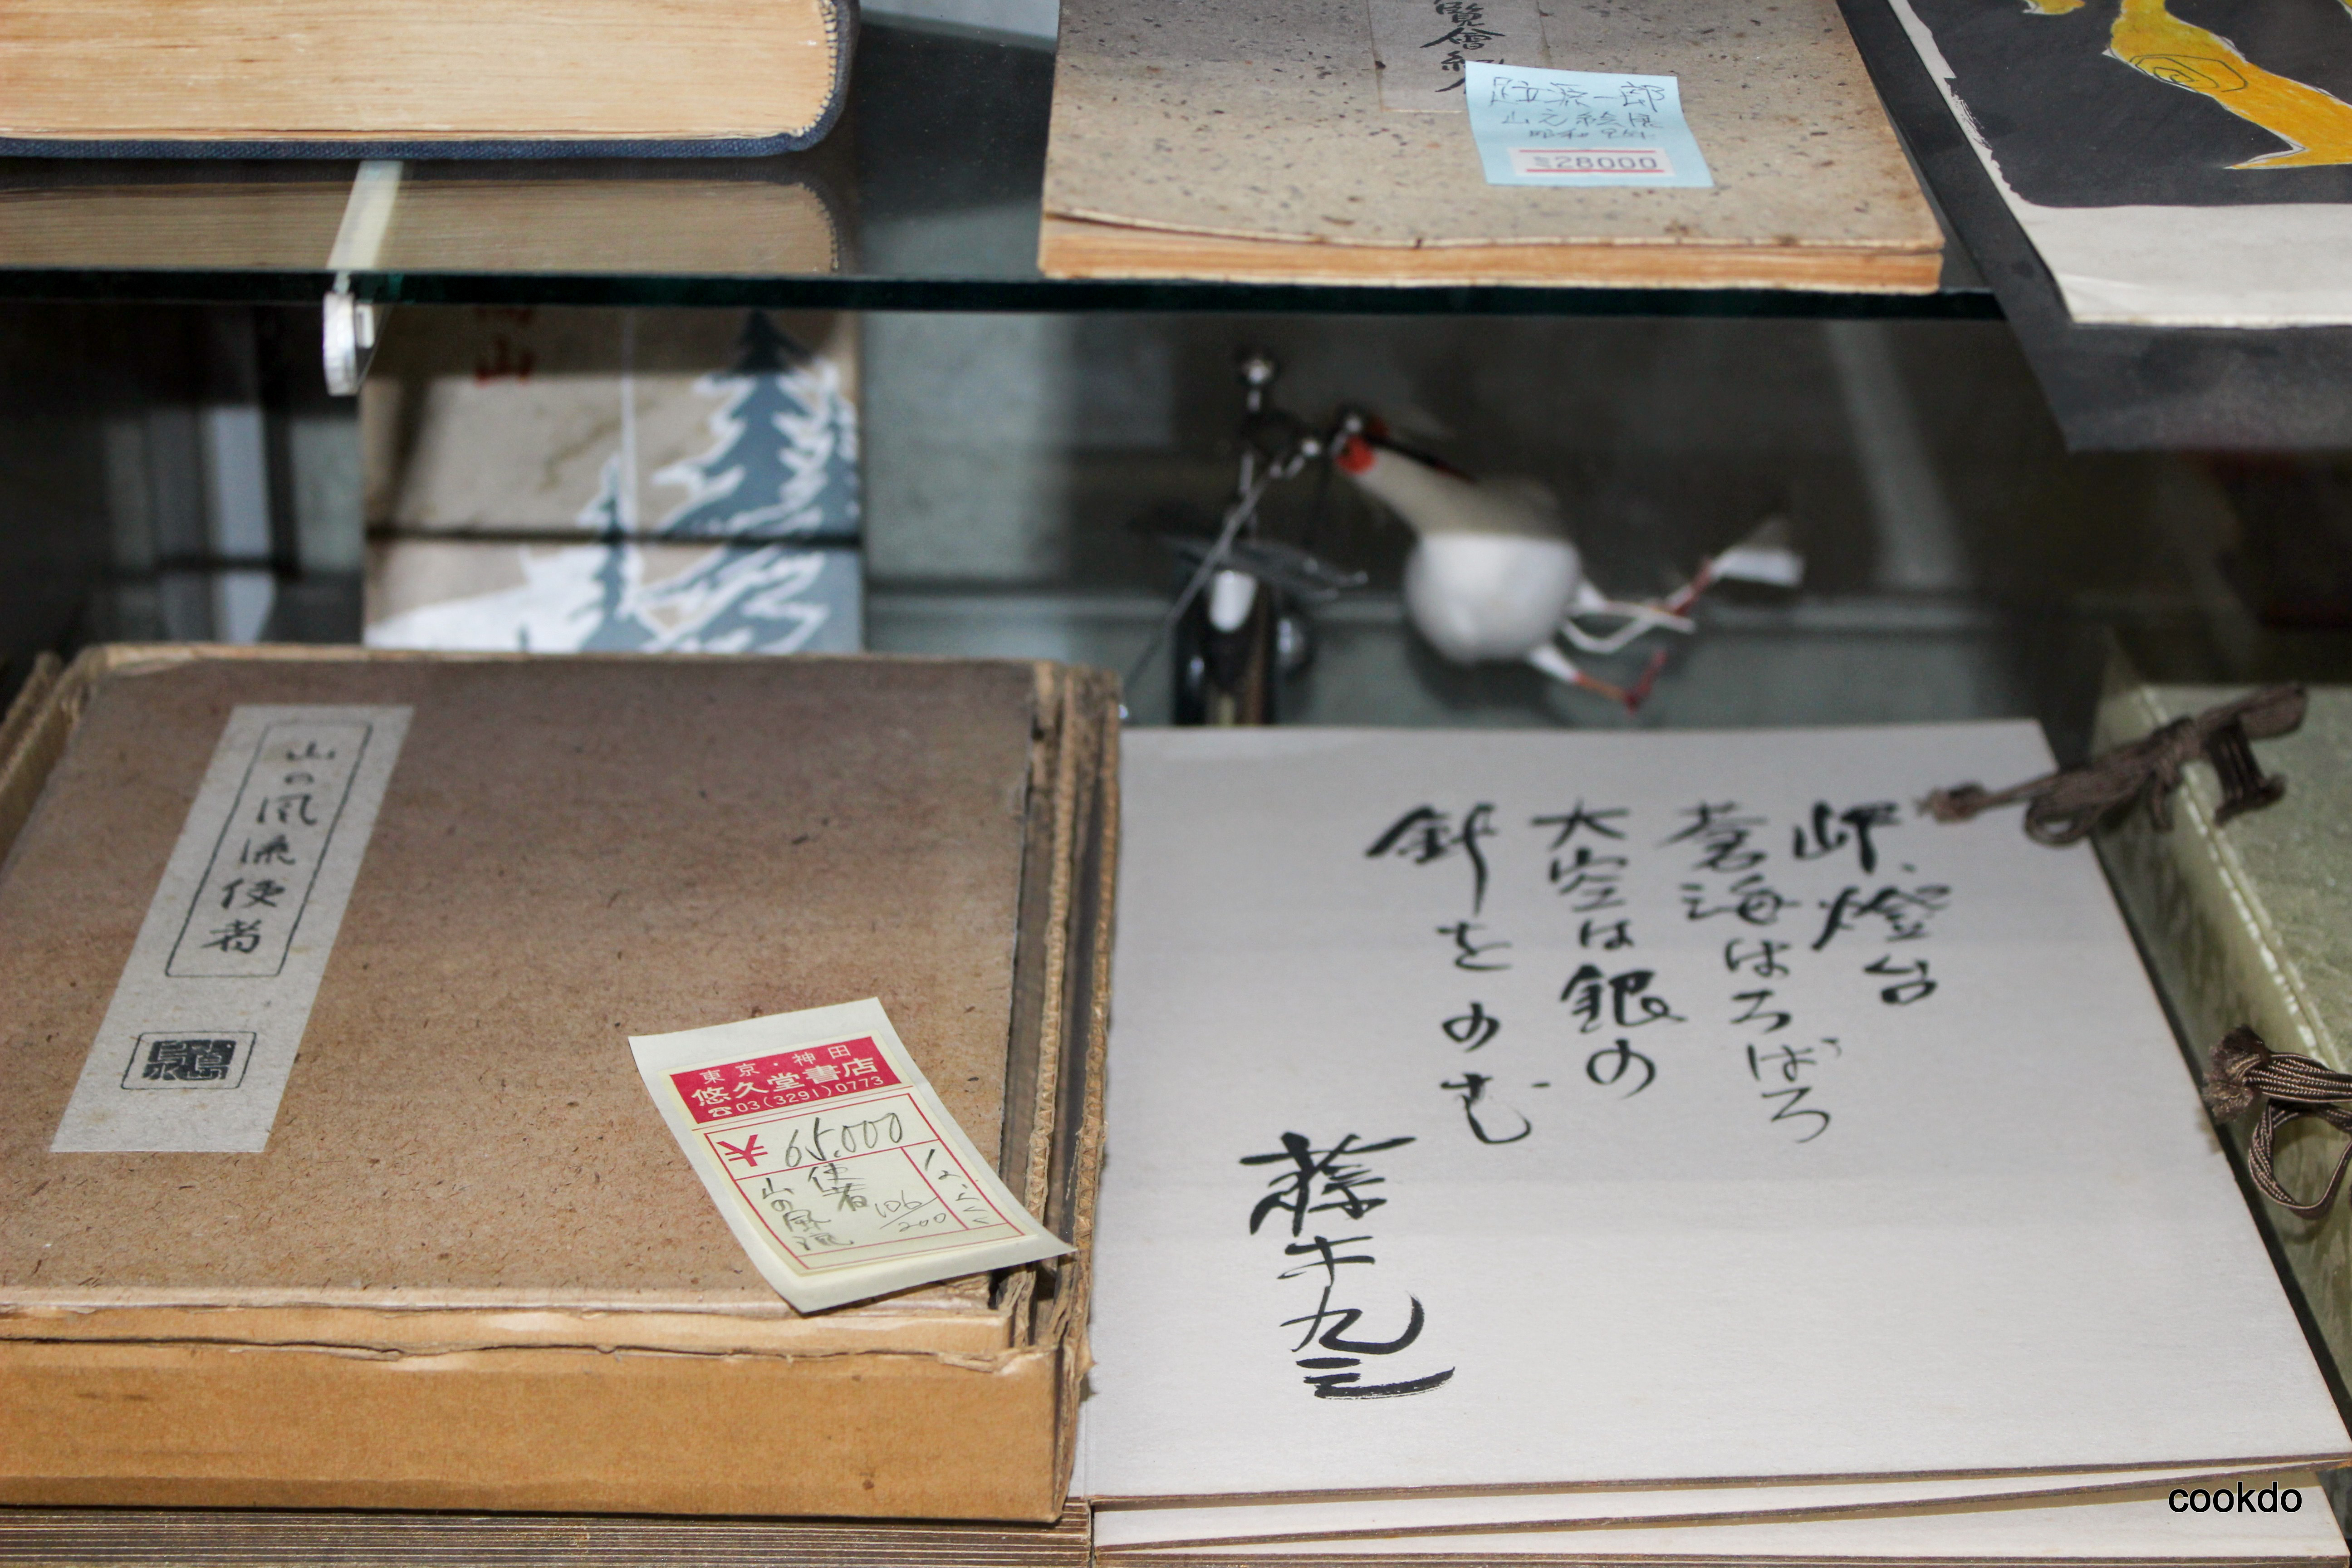 覽會紀
山之絵
28000
山
山の風流使者
東京・神田
悠久堂書店
☎03(3291)0773
大 65,000
山の風流
使者
106/200
岬、燈台
蒼海はろばろ
大空は銀の
針をのむ
cookdo